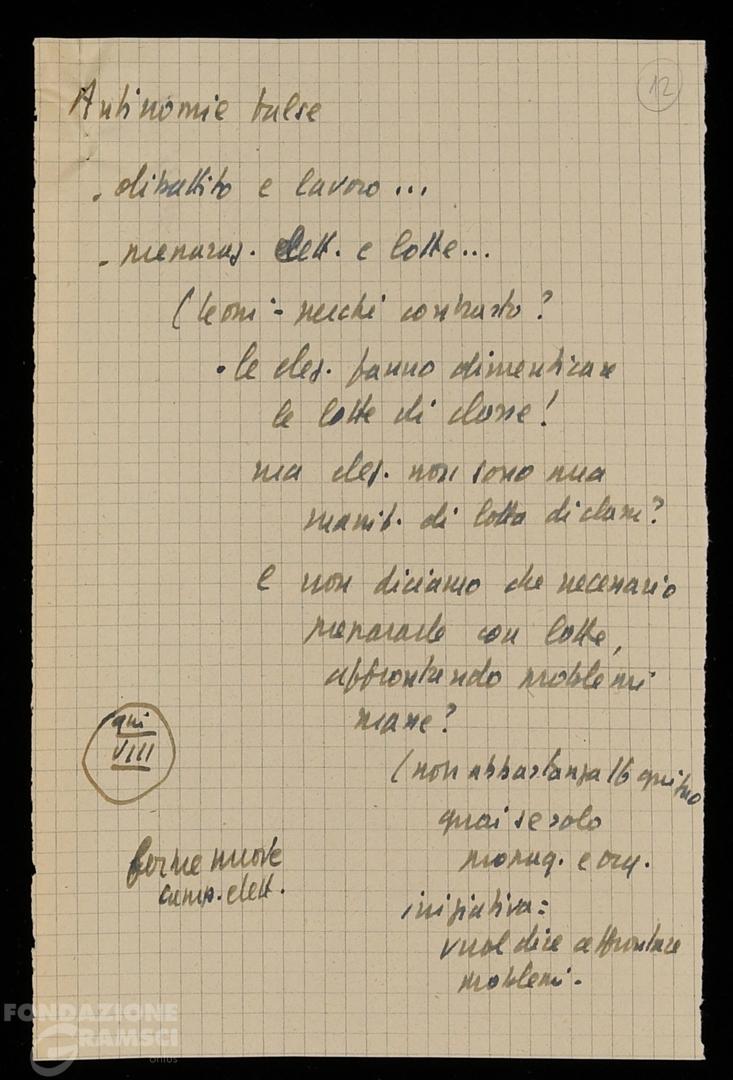 12
Antinomie false
- dibattito e lavoro...
- preparaz. elett. e lotte...
(teoni - perché contrasto?
• le elez. fanno dimenticare
le lotte di classe!
ma elez. non sono una
manif. di lotta di classe?
e non diciamo che necessario
prepararle con lotte,
affrontando problemi
masse?
(non abbastanza 16 giugno
guai se solo
propag. e org.
iniziativa =
vuol dire affrontare
problemi -
qui
VIII
forme nuove
camp. elett.
FONDAZIONE
GRAMSCI
onlus